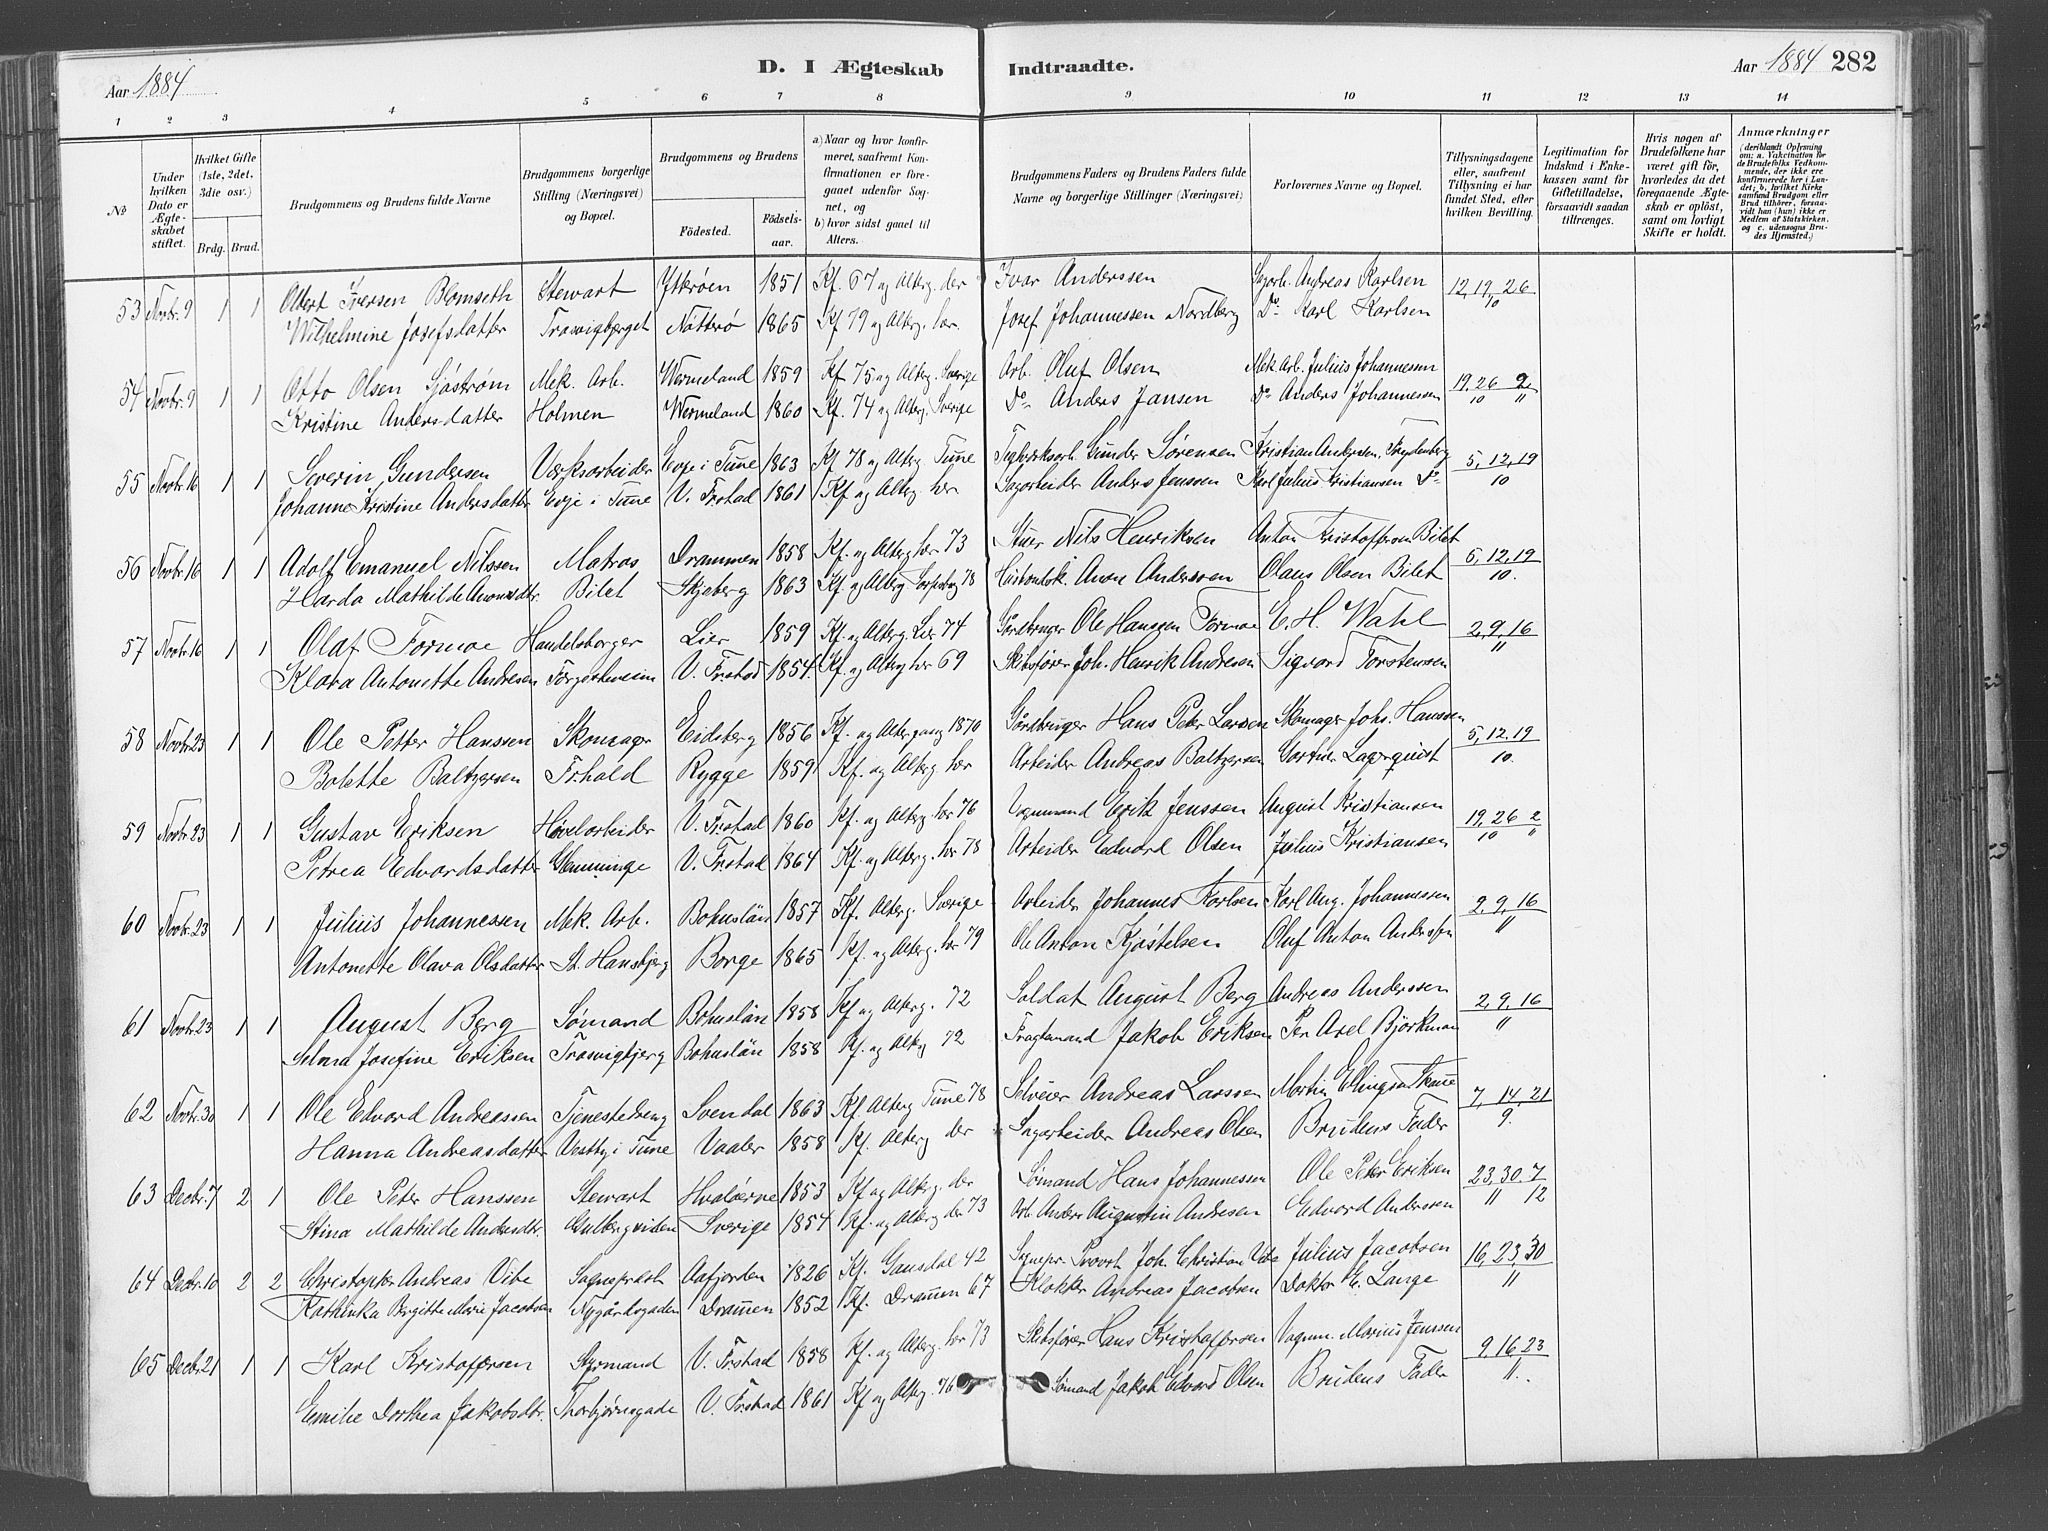 Aar 1884
D. I Ægteskab Indtraadte.
Aar 1884 282
1 2 3 4 5 6 7 8 9 10 11 12 13 14
No
Under hvilken Dato er Ægteskabet stiftet.
Hvilket Gifte (1ste, 2det, 3die osv.)
Brdg. Brud.
Brudgommens og Brudens fulde Navne
Brudgommens borgerlige Stilling (Næringsvei) og Bopæl.
Brudgommens og Brudens
Födested. Födselsaar.
a) Naar og hvor konfirmeret, saafremt Konfirmationen er foregaaet udenfor Sognet, og
b) hvor sidst gaaet til Alters.
Brudgommens Faders og Brudens Faders fulde Navne og borgerlige Stillinger (Næringsvei)
Forlovernes Navne og Bopæl.
Tillysningsdagene eller, saafremt Tillysning ei har fundet Sted, efter hvilken Bevilling.
Legitimation for Indskud i Enkekassen samt for Giftetilladelse, forsaavidt saadan tiltrænges.
Hvis nogen af Brudefolkene har været gift för, hvorledes da det foregaaende Ægteskab er oplöst, samt om lovligt Skifte er holdt.
Anmærkninger
(deriblandt Oplysning om: a. Vakcination for de Brudefolks Vedkommende, der ikke ere konfirmerede her i Landet; b. hvilket Kirkesamfund Brudgom eller Brud tilhörer, forsaavidt han (hun) ikke er Medlem af Statskirken, og c. udensogns Brudes Hjemsted.)
53 Novbr. 9 1 1 Albert Iversen Blomseth Stewart Ytterøen 1851 Kf. 67 og Alterg. der Ivar Anderssen Sagarb. Andreas Karlsen 12, 19, 26
Wilhelmine Josefsdatter Trosvigbjerget Nötterö 1865 Kf 79 og Alterg. her. Josef Johannessen Nordberg Do. Karl Karlsen 10
54 Novbr. 9 1 1 Otto Olsen Sjöström Mek. Arb. Wermeland 1859 Kf 75 og Alterg. Sverige Arb. Oluf Olsen Mek. Arb. Julius Johannessen 19, 26 2
Kristine Andersdatter Holmen Wermeland 1860 Kf. 74 og Alterg. Sverige Do Anders Jansen Do Anders Johannessen 10 11
55 Novbr. 16 1 1 Severin Gundersen Værksarbeider Evje i Tune 1863 Kf 78 og Alterg. Tune Teglværksarb. Gunder Sørensen Kristian Andersen, Frydenberg 5, 12, 19
Johanne Kristine Andersdatter Evje i Tune V. Frstad 1861 Kf. og Alterg. her Sagarbeider Anders Jenssen Karl Julius Kristiansen Do 10
56 Novbr. 16 1 1 Adolf Emanuel Nilssen Matros Drammen 1858 Kf. og Alterg her 73 Nils Henriksen Anton Kristoffersen Bilet 5, 12, 19
Harda Mathilde Bilet Skjeberg 1863 Kf. og Alterg Sarpsborg 78 Anderssen Olaus Olsen Bilet 10.
57 Novbr. 16 1 1 Olaf Formoe Handelsborger Lier 1859 Kf. og Alterg. Lier 74 Gårdbruger Ole Hanssen Formoe E. H. Wahl 2, 9, 16
Klara Antonette Andresen V. Frstad 1854. Kf. og Alterg her 69 Skibsfører Joh. Henrik Andresen Sigvard Torstenssen 11
58 Novbr. 23 1 1 Ole Petter Hanssen Skomager Eidsberg 1856 Kf. og Altergang 1870 Gårdbruger Hans Peter Larssen Skomager Johs. Hanssen 5, 12. 19
Bolette Baltzersen Frhald Rygge 1859 Kf. og Alterg. her Arbeider Andreas Baltzersen Gartner Lagerquist 10.
59 Novbr. 23 1 1 Gustav Eriksen Høvelarbeider V. Frstad 1860 Kf. og Alterg. her 76 Vognmand Erik Jenssen August Kristiansen 19, 26 2
Petrea Edvardsdatter Glemminge V. Frstad 1864 Kf. og Alterg. her 78 Arbeider Edvard Olsen Julius Kristiansen 10 11
60 Novbr. 23 1 1 Julius Johannessen Mek. Arb. Bohuslän 1857 Kf. Alterg. Sverige Arbeider Johannes Karlsen Karl Aug. Johannessen 2, 9, 16
Antonette Olava Olsdatter St. Hansbjerg Borge 1865 Kf. og Alterg. her 79 Ole Anton Kjøstelsen Oluf Anton Anderssen 11
61 Novbr. 23 1 1 August Berg Sømand Bohuslän 1858 Kf og Alterg. 72 Soldat August Berg Andreas Anderssen 2, 9, 16
Selma Josefine Eriksen Trosvigbjerg Bohuslän 1858 Kf. og Alterg 72 Fragtemand Jakob Eriksen Per Axel Björkman 11
62 Novbr. 30 1 1 Ole Edvard Andreassen Tjenestedreng Svendal 1863 Kf Alterg Tune 78 Selveier Andreas Larssen Martin Ellingsen 7, 14, 21
Hanna Andreasdatter Vestby i Tune Vaaler 1858 Kf. Alterg der Sagarbeider Andreas Olsen Brudens Fader 9.
63 Decbr. 7 2 1 Ole Peter Hanssen Stewart Hvaløerne 1853 Kf og Alterg. der Sømand Hans Johannessen Ole Peter Eriksen 23, 30, 7
Stina Mathilde Andersdtr. Gulbergsiden Sverige 1854 Kf. og Alterg der 73 Arb. Anders Augustin Andresen Edvard Anderssen 11 12
64 Decbr. 10 2 2 Christopher Andreas Vibe Sogneprest Aafjorden 1826 Kf. Gausdal 42 Sognepr. Provst Joh. Christian Vibe Julius Jacobsen 16, 23, 30
Kathinka Birgitte Marie Jacobsen Nygårdsgaden Dramen 1852 Kf. Dramen 67 Klokker Andreas Jacobsen Doktor E. Lange 11
65 Decbr. 21 1 1 Karl Kristoffersen Styrmand V. Frstad 1858 Kf. og Alterg. her 73 Skibsfører Hans Kristoffersen Vognm. Marius Jenssen 9, 16, 23
Emilie Dorthea Jakobsdtr. Thorbjørnsgade V. Frstad 1861 Kf og Alterg. 76 Sømand Jakob Edvard Olsen Brudens Fader 11.